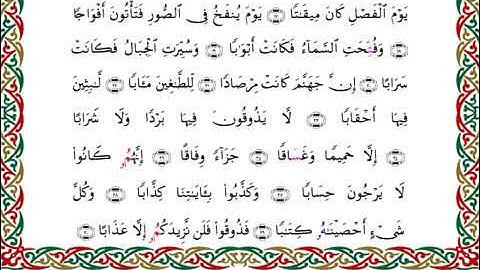 يَوْمَ ٱلْفَصْلِ كَانَ مِيقَٰتًا ١٧ يَوْمَ يُنفَخُ فِي ٱلصُّورِ فَتَأْتُونَ أَفْوَاجًا
١٨ وَفُتِّحَتِ ٱلسَّمَآءُ فَكَانَتْ أَبْوَٰبًا ١٩ وَسُيِّرَتِ ٱلْجِبَالُ فَكَانَتْ
سَرَابًا ٢٠ إِنَّ جَهَنَّمَ كَانَتْ مِرْصَادًا ٢١ لِّلطَّٰغِينَ مَـَٔابًا ٢٢ لَّٰبِثِينَ
فِيهَآ أَحْقَابًا ٢٣ لَّا يَذُوقُونَ فِيهَا بَرْدًا وَلَا شَرَابًا
٢٤ إِلَّا حَمِيمًا وَغَسَاقًا ٢٥ جَزَآءً وِفَاقًا ٢٦ إِنَّهُمُۥ كَانُوا۟
لَا يَرْجُونَ حِسَابًا ٢٧ وَكَذَّبُوا۟ بِـَٔايَٰتِنَا كِذَّابًا ٢٨ وَكُلَّ
شَىْءٍ أَحْصَيْنَٰهُ كِتَٰبًا ٢٩ فَذُوقُوا۟ فَلَن نَّزِيدَكُمُۥٓ إِلَّا عَذَابًا ٣٠